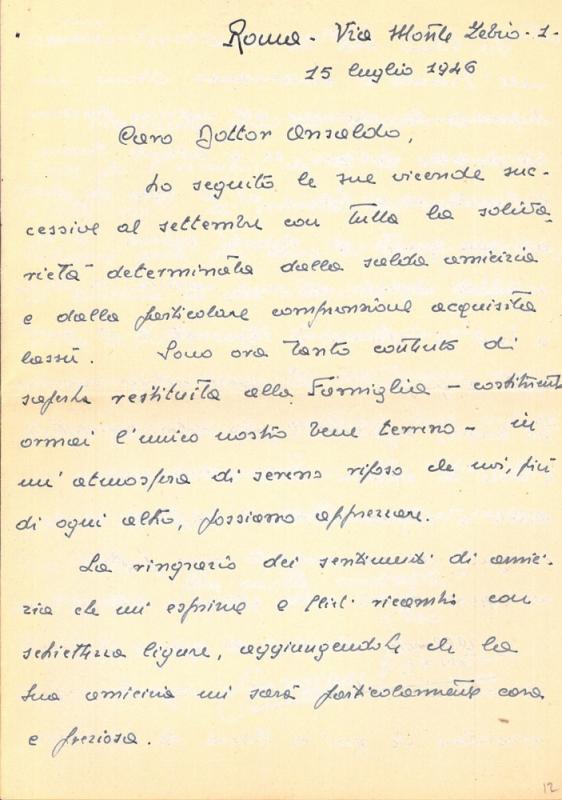 Roma - Via Monte Zebio - 1 -
15 luglio 1946
Caro Dottor Ansaldo,
ho seguito le sue vicende suc-
cessive al settembre con tutta la solida-
rietà determinata dalla salda amicizia
e dalla particolare comprensione acquisita
lassù. Sono ora tanto contento di
saperla restituita alla Famiglia - costituente
ormai l'unico nostro bene terreno - in
un'atmosfera di sereno riposo che noi, più
di ogni altro, possiamo apprezzare.
La ringrazio dei sentimenti di amici-
zia che mi esprime e glieli ricambio con
schiettezza ligure, aggiungendole che la
Sua amicizia mi sarà particolarmente cara
e preziosa.
12